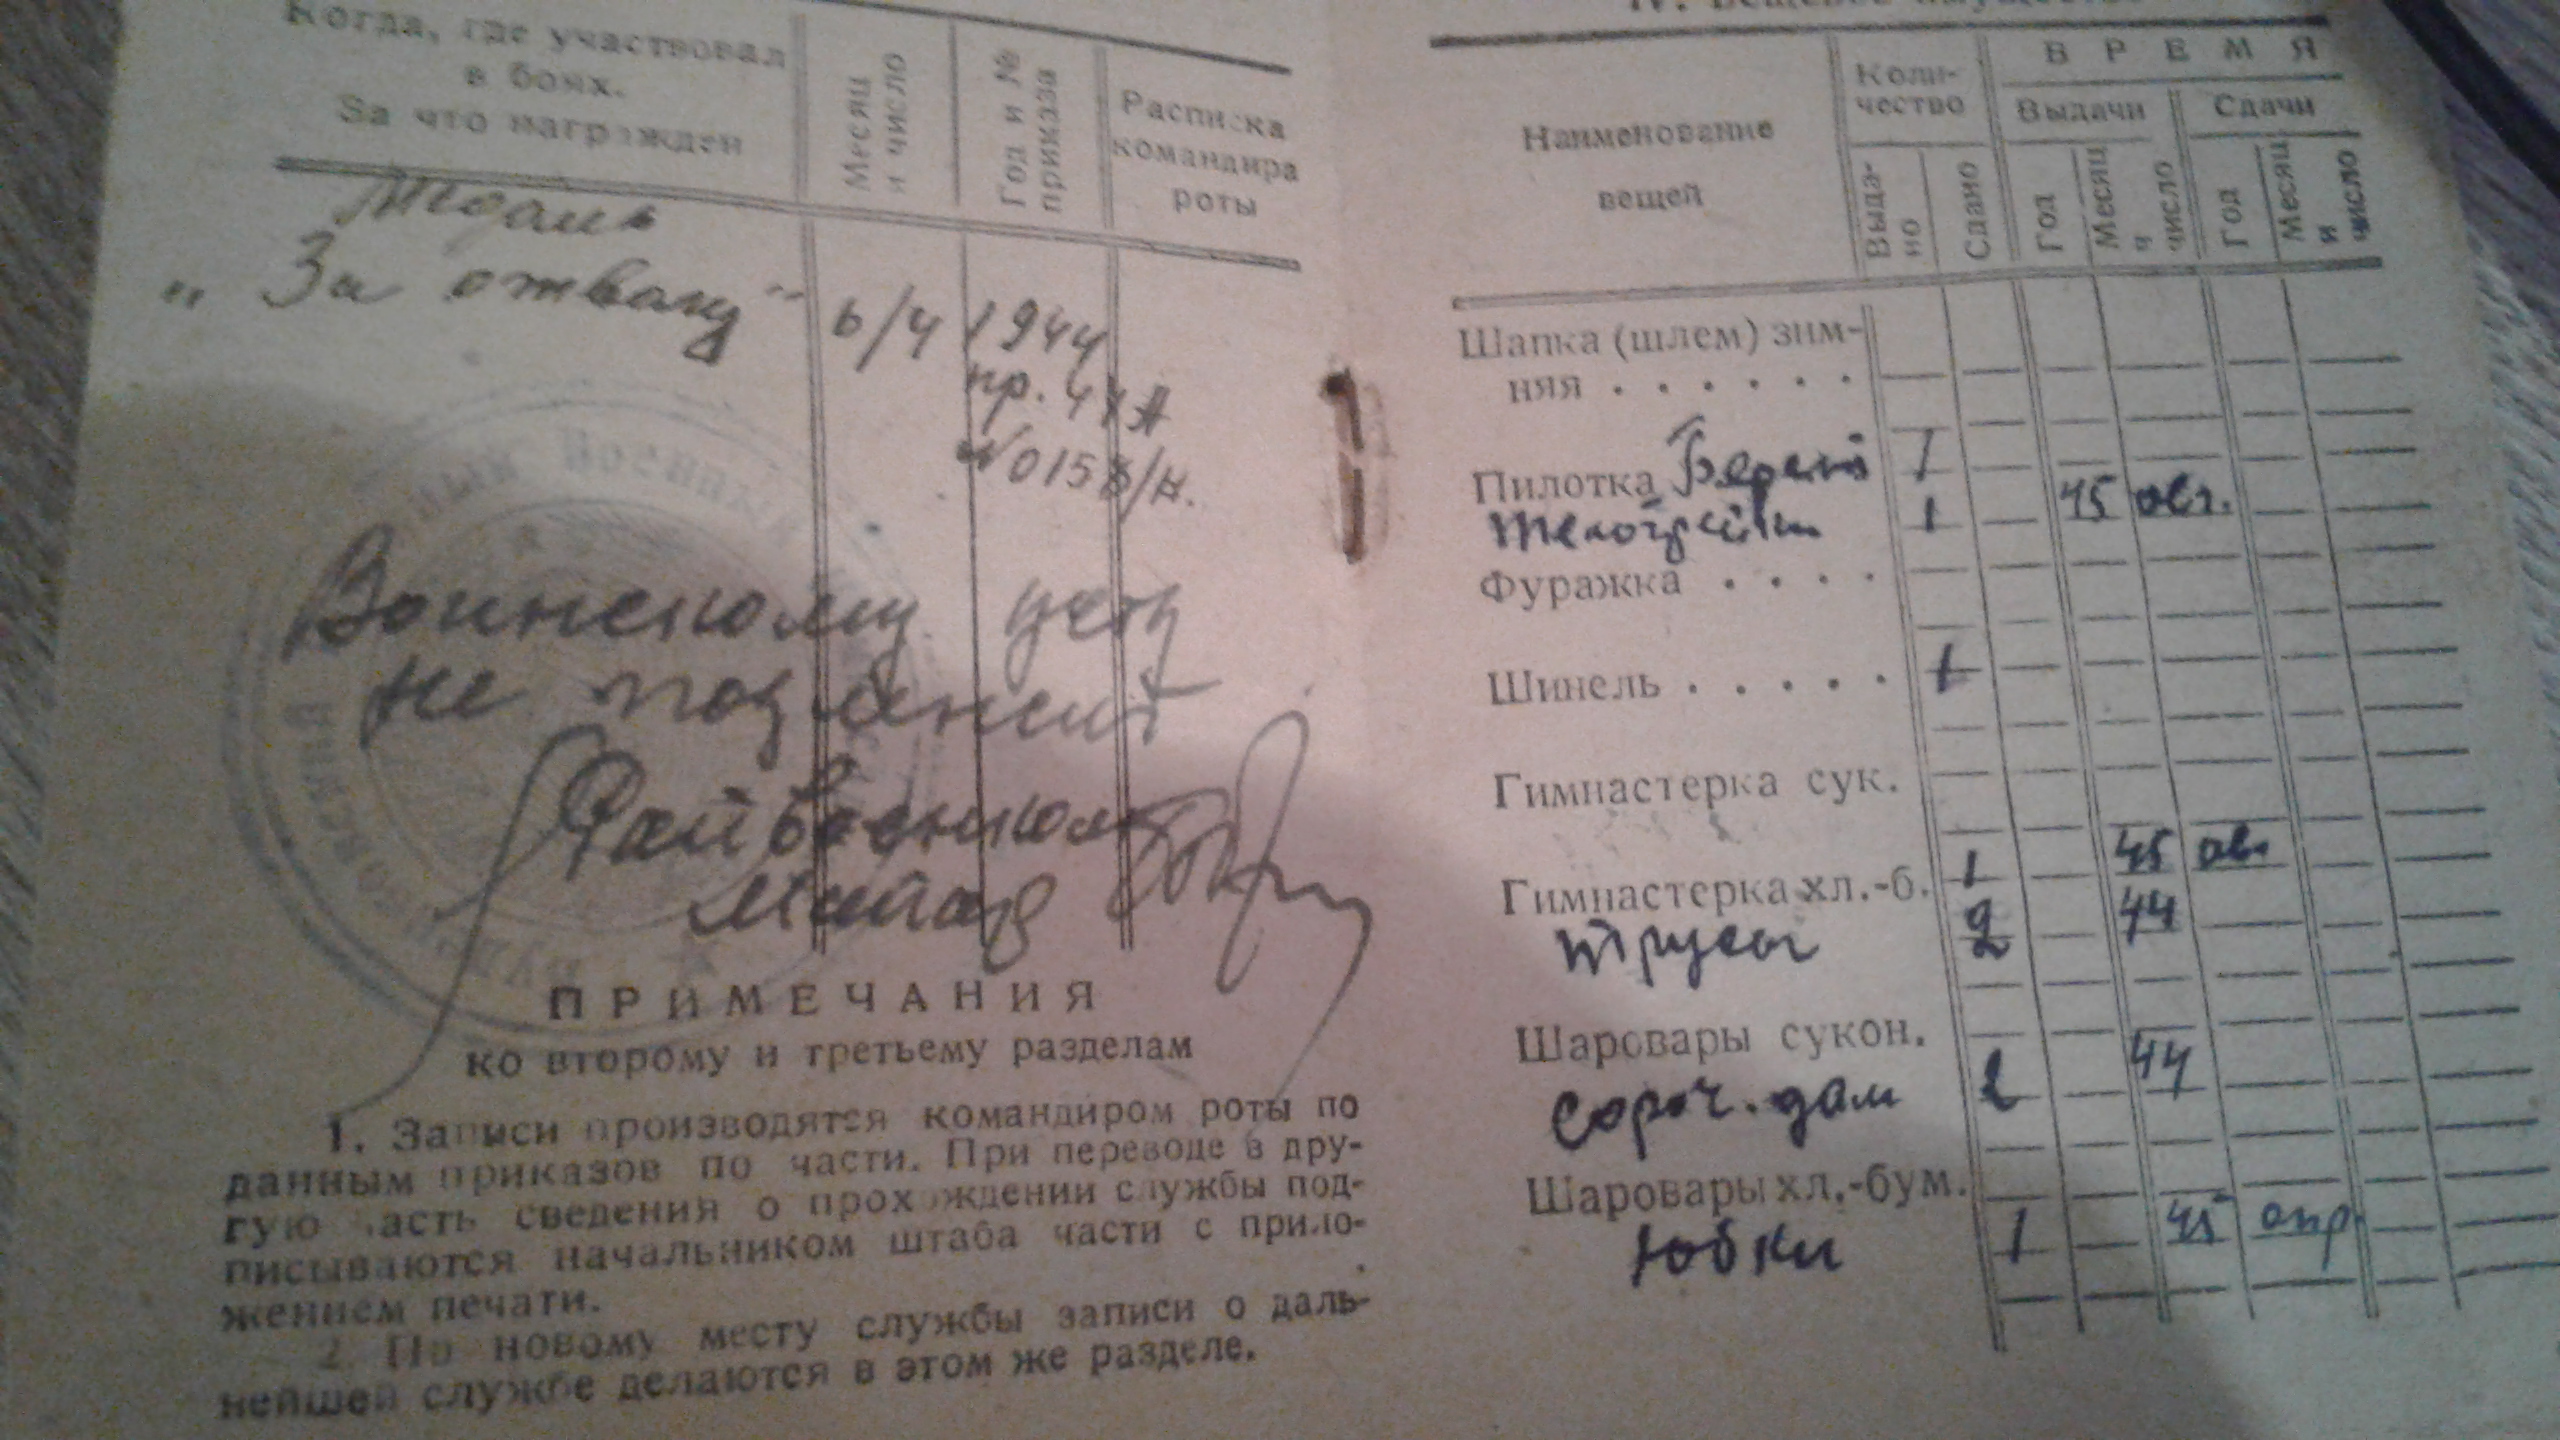 Когда, где участвовал
в боях.
За что награжден
Месяц
и число
Год и №
приказа
Расписка
командира
роты
Медаль
„За отвагу"
6/4
1944
пр. 44А
№015
Воинскому учету
не подлежит
Райвоенком
Майор
ПРИМЕЧАНИЯ
ко второму и третьему разделам
1. Записи производятся командиром роты по
данным приказов по части. При переводе в дру-
гую часть сведения о прохождении службы под-
писываются начальником штаба части с прило-
жением печати.
2. По новому месту службы записи о даль-
нейшей службе делаются в этом же разделе.
IV. Вещевое имущество
Наименование
вещей
Коли-
чество
ВРЕМЯ
Выдачи
Сдачи
Выда-
но
Сдано
Год
Месяц
и
число
Год
Месяц
и
число
Шапка (шлем) зим-
няя . . . . . .
Пилотка Берет 1
телогрейка 1 45 авг.
Фуражка . . . .
Шинель . . . . . 1
Гимнастерка сук.
Гимнастерка хл.-б. 1 45 авг
трусы 2 44
Шаровары сукон.
сороч. дам 2 44
Шаровары хл.-бум.
Юбки 1 45 апр